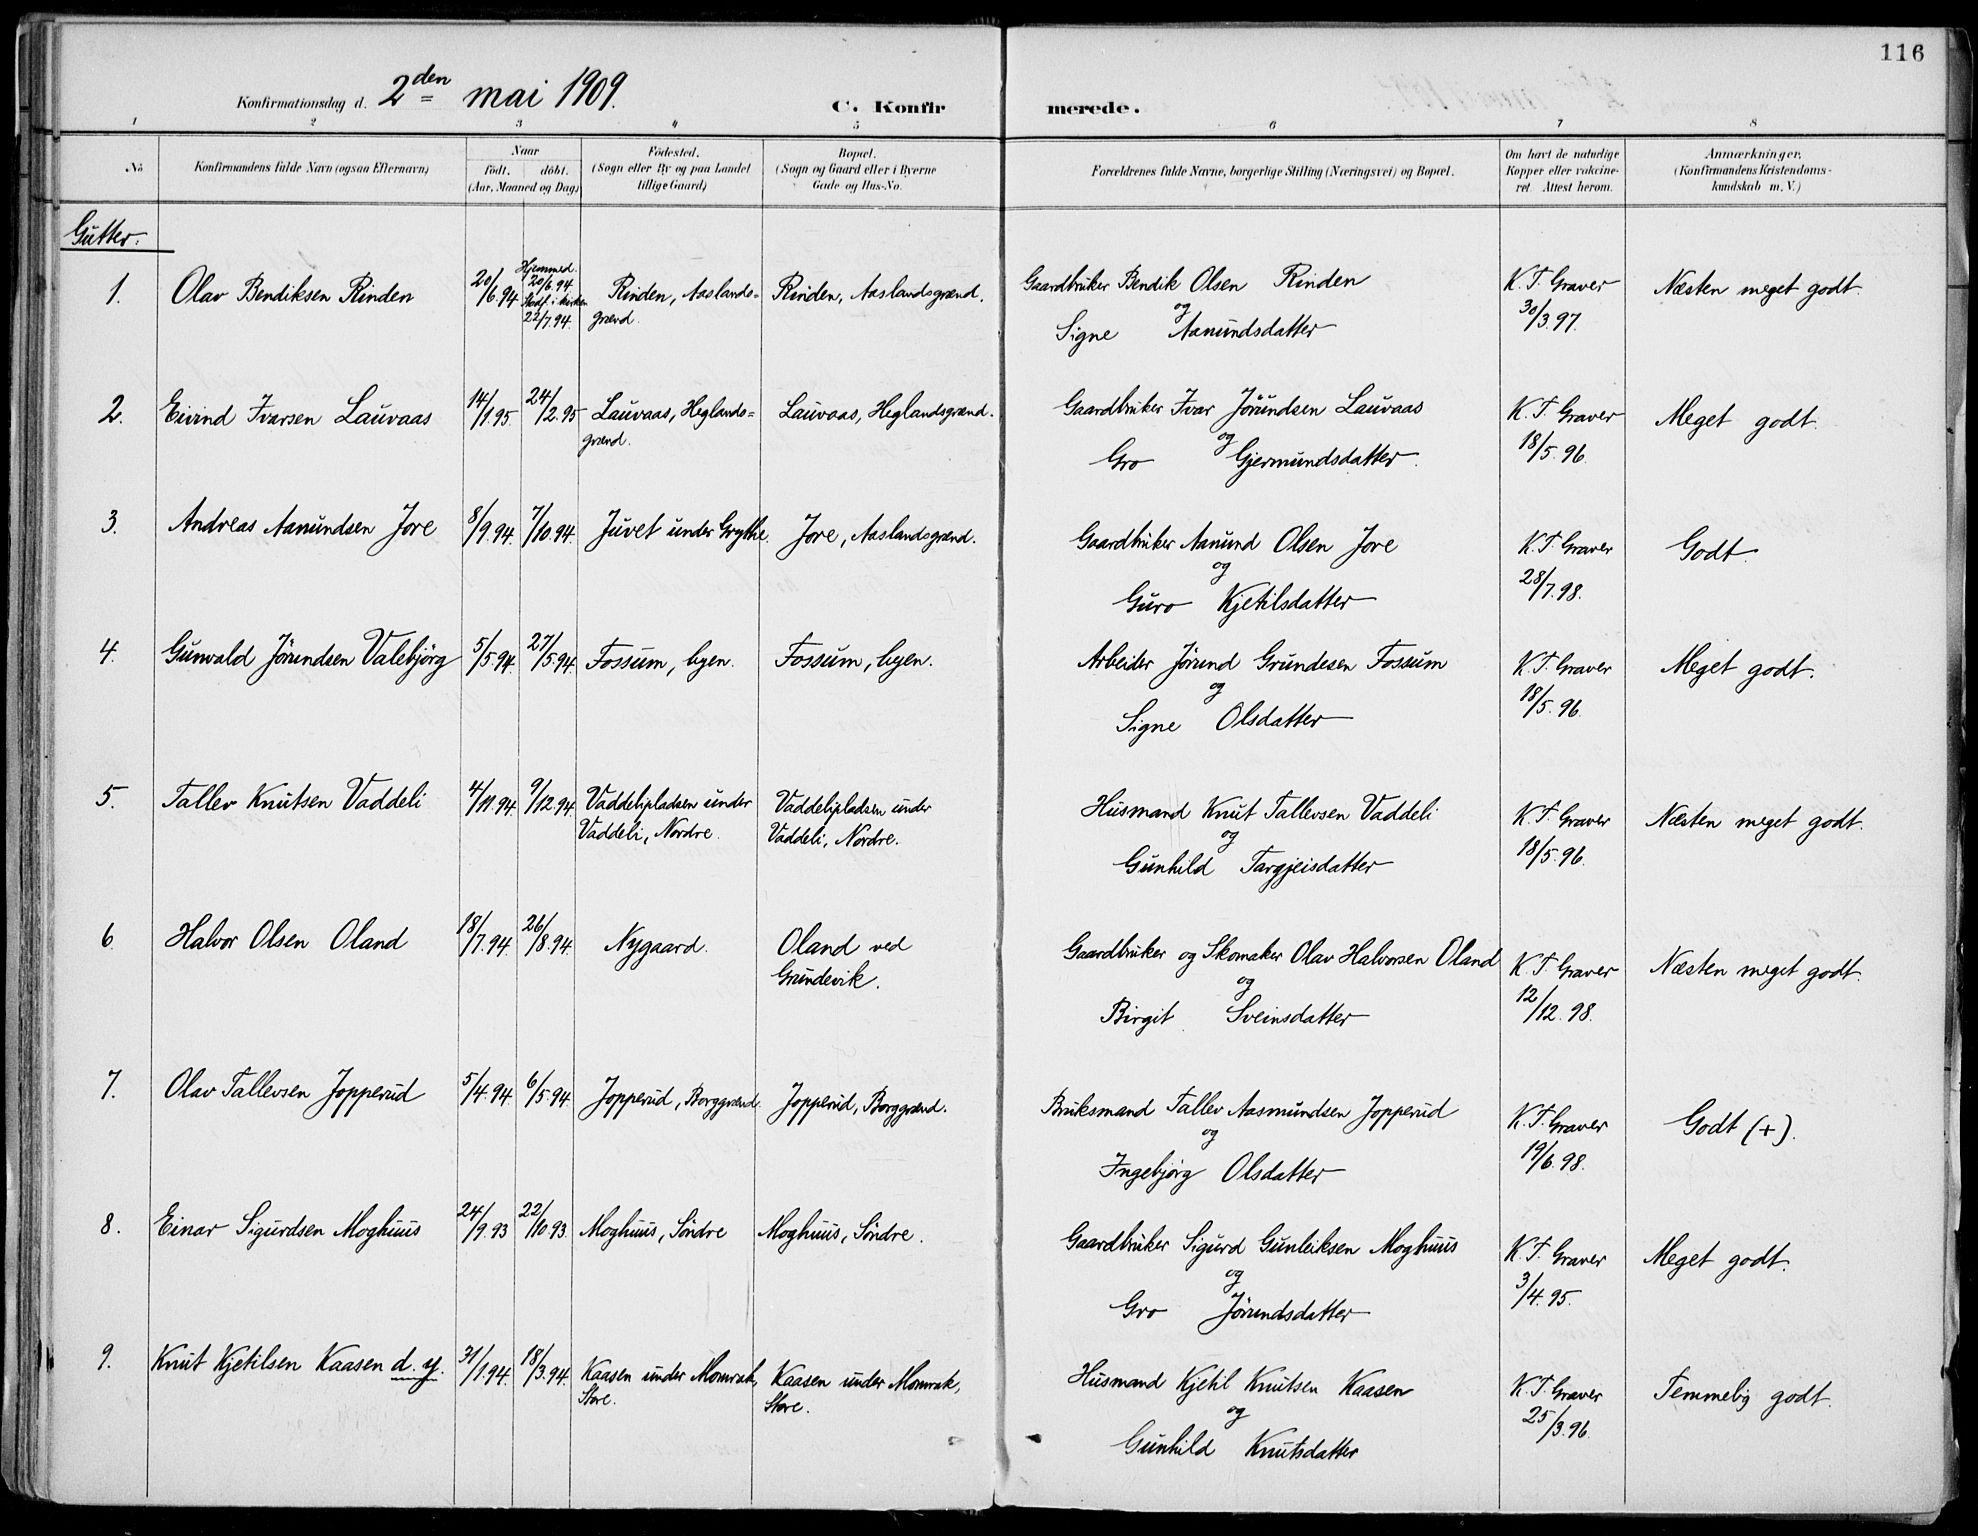 116
Konfirmationsdag d. 2den mai 1909.
C. Konfirmerede.
1 2 3 4 5 6 7 8
No
Konfirmandens fulde Navn (ogsaa Efternavn)
Naar
født. døbt.
(Aar, Maaned og Dag)
Fødested.
(Sogn eller By og paa Landet
tillige Gaard)
Bopæl.
(Sogn og Gaard eller i Byerne
Gade og Hus-No.
Forældrenes fulde Navne, borgerlige Stilling (Næringsvei) og Bopæl.
Om havt de naturlige
Kopper eller vakcine-
ret. Attest herom.
Anmærkninger.
(Konfirmandens Kristendoms-
kundskab m. V.)
Gutter:
1. Olav Bendiksen Rinden 20/6.94 Hjemmed. 20/6.94 Stadf. i kirken 22/7.94. Rinden, Aaslands= Rinden, Aaslandsgrænd. Gaardbruker Bendik Olsen Rinden K. T. Graver Næsten meget godt.
grænd. og 30/3.97.
Signe Aanundsdatter
2. Eivind Ivarsen Lauvaas 14/1.95. 24/2.95 Lauvaas, Heglands= Lauvaas, Heglandsgrænd. Gaardbruker Ivar Jörundsen Lauvaas K. T. Graver Meget godt.
grænd. og 18/5.96.
Gro Gjermundsdatter.
3. Andreas Aanundsen Jore 8/9.94. 7/10.94. Juvet under Grythe. Jore, Aaslandsgrænd. Gaardbruker Aanund Olsen Jore K. T. Graver Godt.
og 28/7.98.
Guro Kjetilsdatter
4. Gunvald Jörundsen Valebjörg 5/5.94. 27/5.94. Fossum, byen. Fossum, byen. Arbeider Jörund Grundesen Fossum K. T. Graver Meget godt.
og 18/5.96.
Signe Olsdatter
5. Tallev Knutsen Vaddeli 4/11.94. 9/12.94. Vaddelipladsen under Vaddelipladsen under Husmand Knut Tallevsen Vaddeli K. T. Graver Næsten meget godt.
Vaddeli, Nordre. Vaddeli, Nordre. og 18/5.96.
Gunhild Targjeisdatter
6. Halvor Olsen Oland 18/7.94. 26/8.94. Nygaard. Oland ved Gaardbruker og Skomaker Olav Halvorsen Oland K. T. Graver Næsten meget godt.
Grundevik. og 12/12.98.
Birgit Sveinsdatter
7. Olav Tallevsen Jopperud 5/4.94. 6/5.94. Jopperud, Borggrænd. Jopperud, Borggrænd. Bruksmand Tallev Aasmundsen Jopperud K. T. Graver Godt (+).
og 19/6.98.
Ingebjörg Olsdatter
8. Einar Sigurdsen Moghuus 24/9.93 22/10.93. Moghuus, Söndre Moghuus, Söndre. Gaardbruker Sigurd Gunleiksen Moghuus K. T. Graver Meget godt.
og 3/4.95.
Gro Jörundsdatter
9. Knut Kjetilsen Kaasen d. y. 31/1.94. 18/3.94. Kaasen under Momrak, Kaasen under Momrak, Husmand Kjetil Knutsen Kaasen K. T. Graver Temmelig godt.
Store. Store. og 25/3.96.
Gunhild Knutsdatter